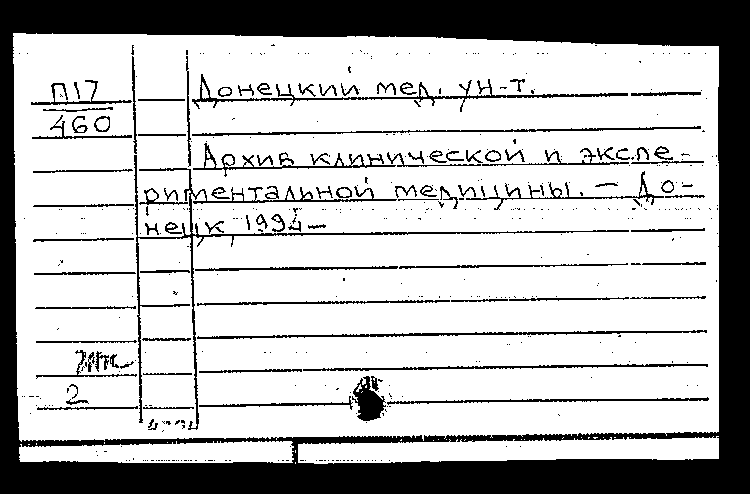 П17
460
Донецкий мед. ун-т.
Архив клинической и экспе-
риментальной медицины. — До-
нецк, 1994—
2